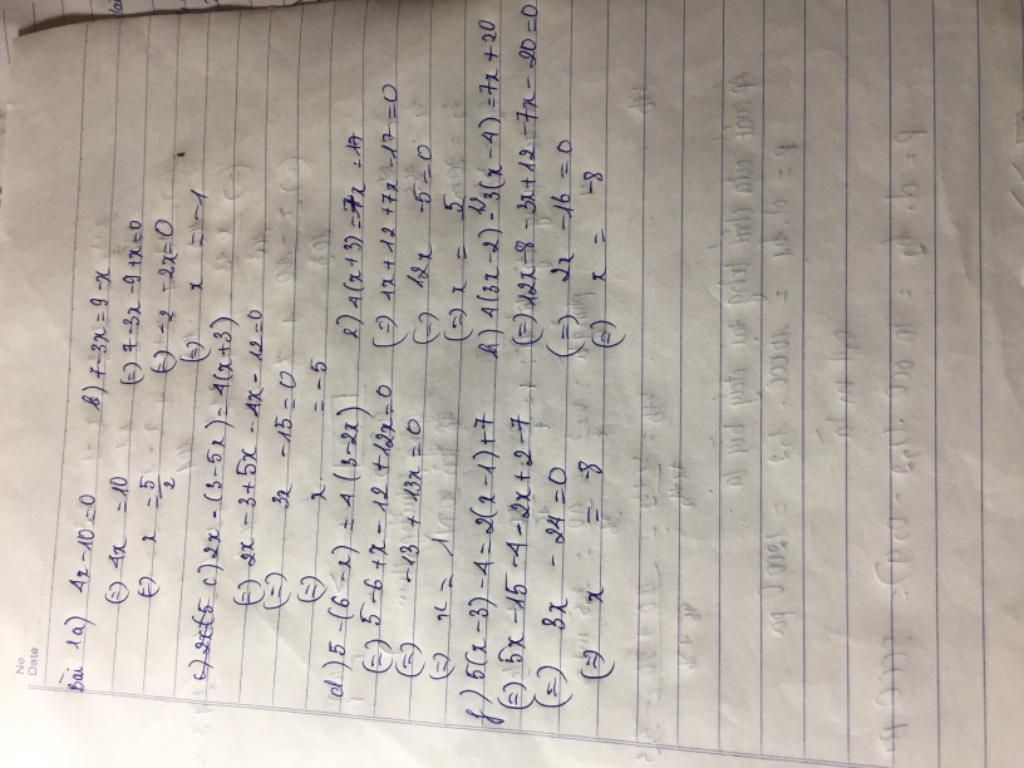 No.
Date
Bài 1a) 4x-10=0 b) 7-3x=9-x
(=) 4x = 10 (=) 7-3x-9+x=0
(=) x = 5/2 (=) -2 -2x=0
(=) x = -1
c) 2x-(3-5x)=4(x+3)
(=) 2x-3+5x-4x-12=0
(=) 3x -15=0
(=) x = -5
d) 5-(6-x)=4(3-2x) e) 4(x+3)=-7x-17
(=) 5-6+x-12+12x=0 (=) 4x+12+7x-17=0
(=) -13+13x=0 (=) 12x -5=0
(=) x = 1 (=) x = 5/12
f) 5(x-3)-4=2(x-1)+7 h) 4(3x-2)-3(x-4)=7x+20
(=) 5x-15-4-2x+2-7 (=) 12x-8-3x+12-7x-20=0
(=) 3x - 24=0 (=) 2x -16=0
(=) x = -8 (=) x = -8